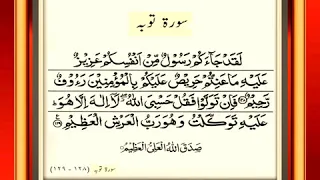 سورة توبہ
لَقَدْ جَآءَكُمْ رَسُوْلٌ مِّنْ اَنْفُسِكُمْ عَزِيْزٌ
عَلَيْهِ مَا عَنِتُّمْ حَرِيْصٌ عَلَيْكُمْ بِالْمُؤْمِنِيْنَ رَءُوْفٌ
رَّحِيْمٌ ﴿۱۲۸﴾ فَاِنْ تَوَلَّوْا فَقُلْ حَسْبِيَ اللّٰهُ لَآ اِلٰهَ اِلَّا هُوَ ط
عَلَيْهِ تَوَكَّلْتُ وَهُوَ رَبُّ الْعَرْشِ الْعَظِيْمِ ﴿۱۲۹﴾
صَدَقَ اللّٰهُ الْعَلِيُّ الْعَظِيْمُ
سورة توبہ (۱۲۸ - ۱۲۹)